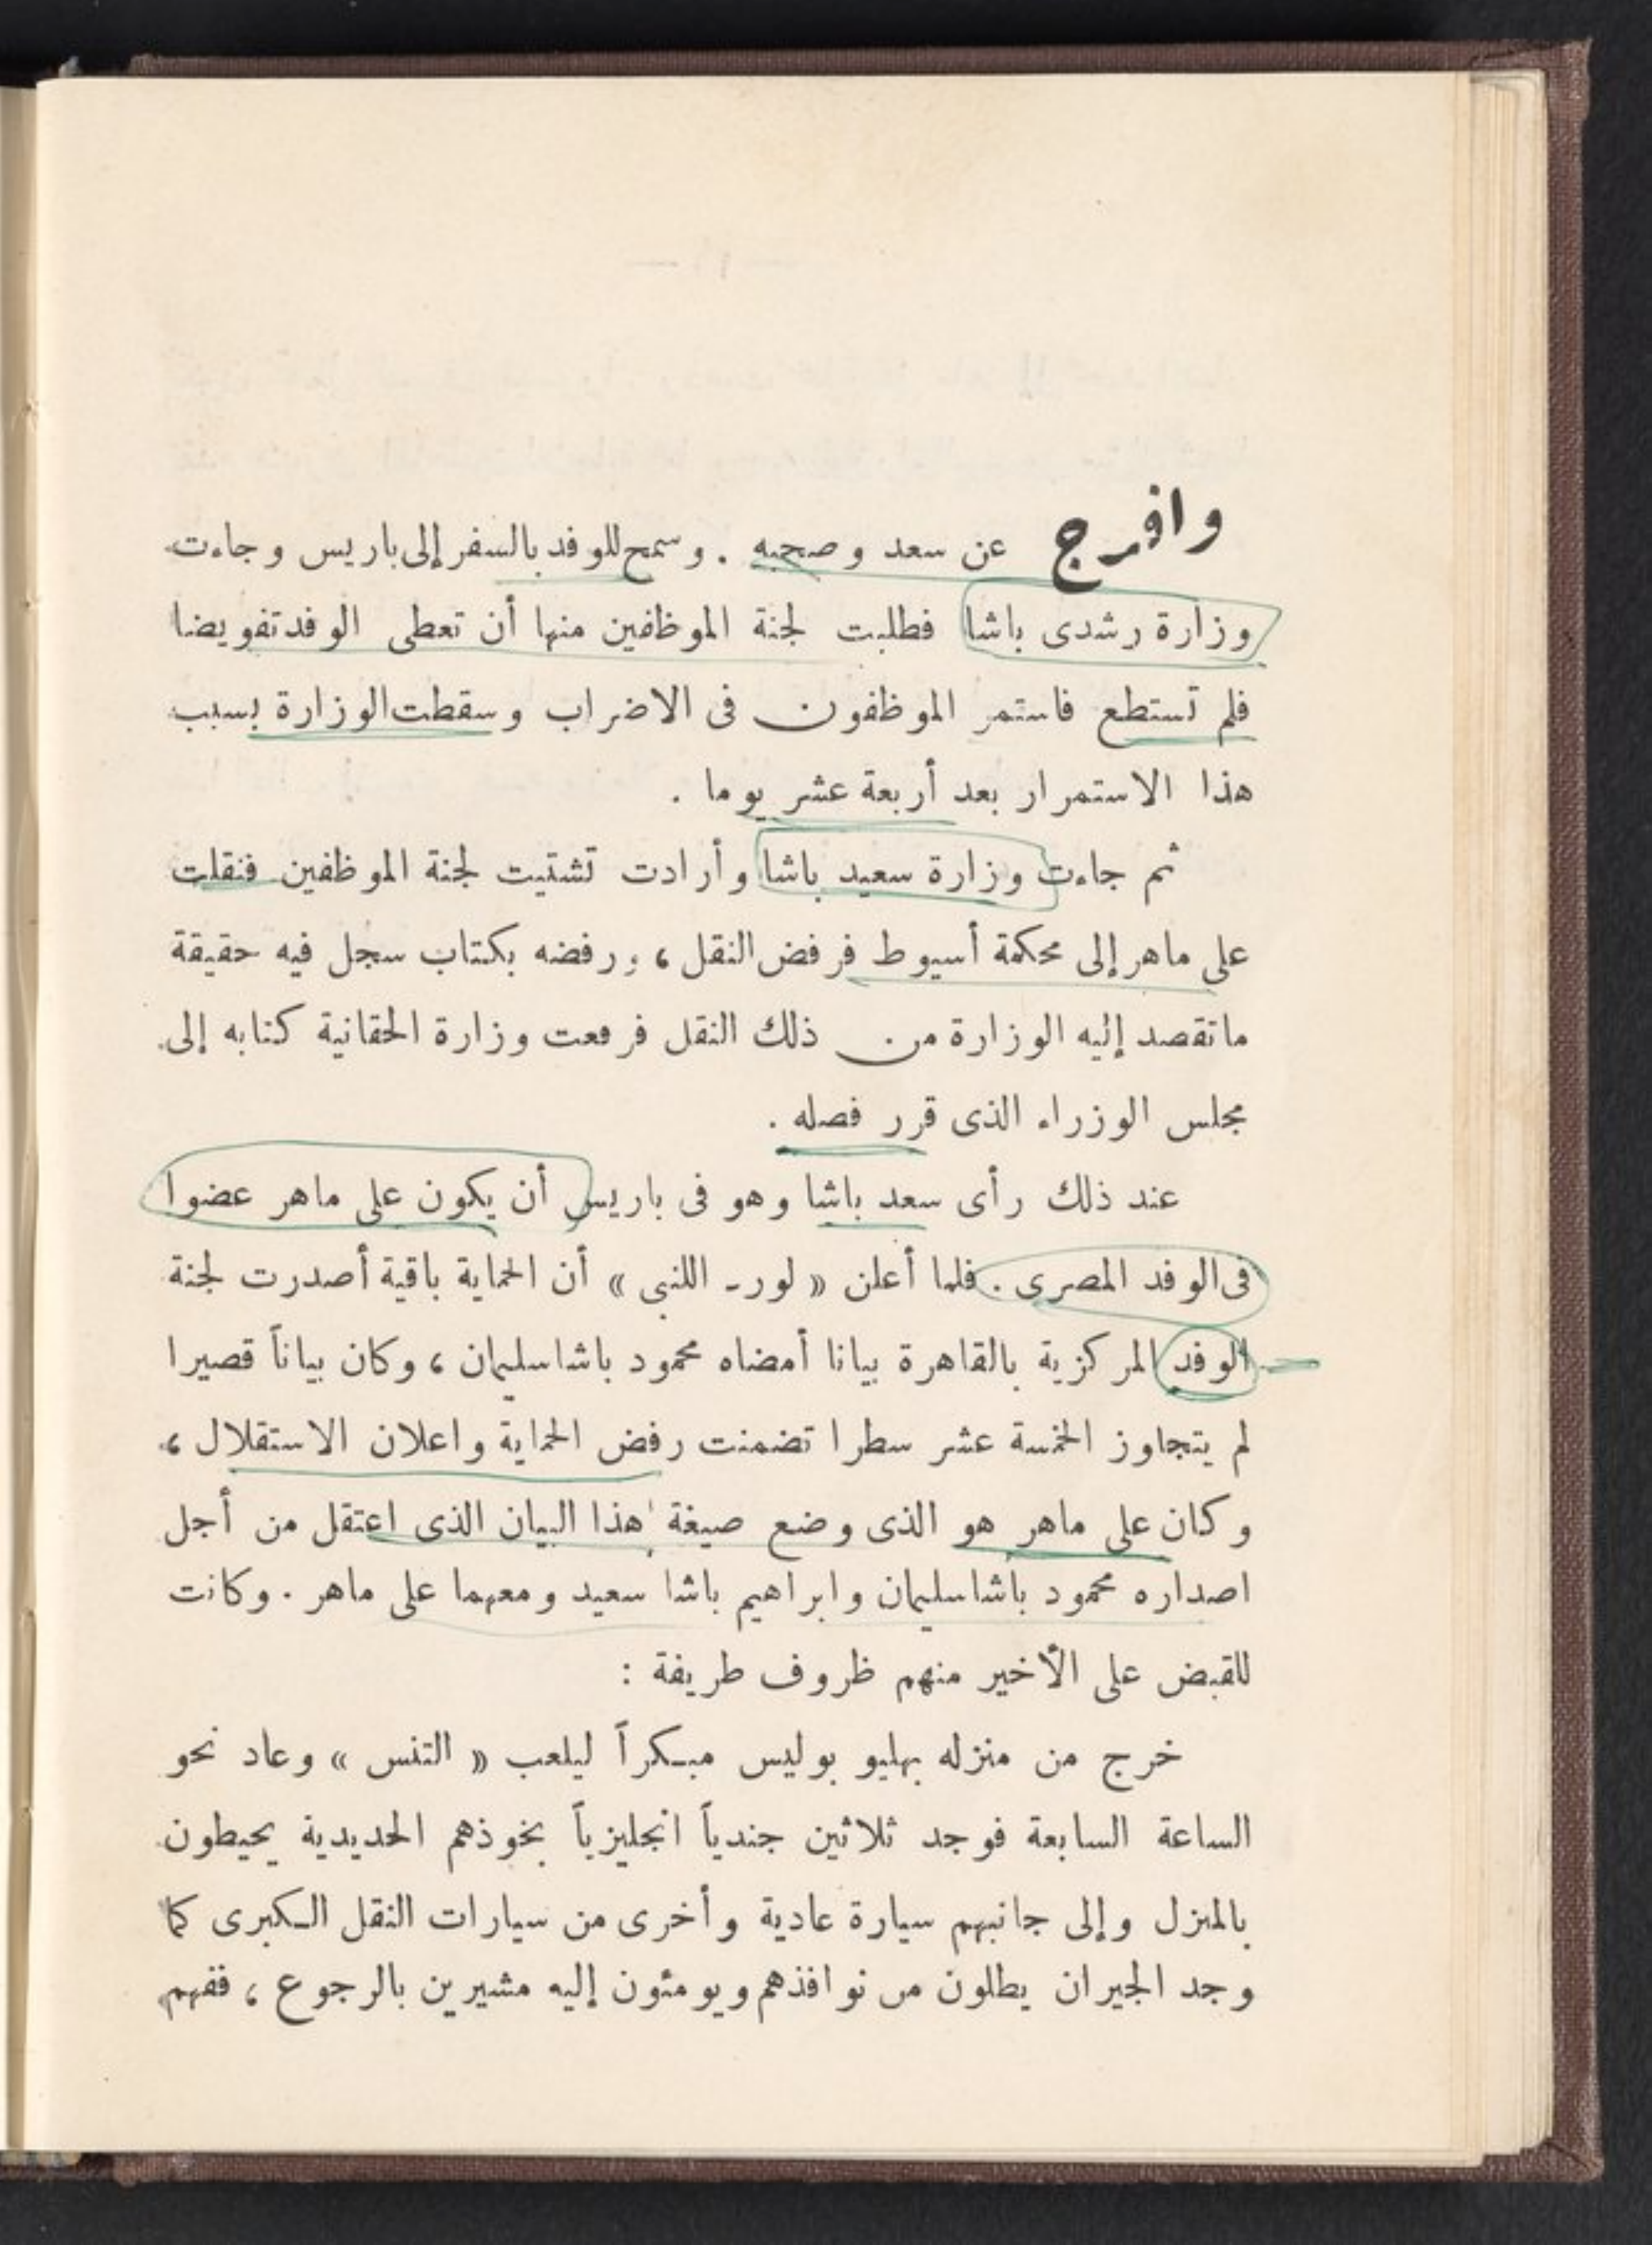 وافرج عن سعد وصحبه . وسمح للوفد بالسفر إلى باريس وجاءت
وزارة رشدى باشا فطلبت لجنة الموظفين منها أن تعطى الوفد تفويضا
فلم تستطع فاستمر الموظفون فى الاضراب وسقطت الوزارة بسبب
هذا الاستمرار بعد أربعة عشر يوما .
ثم جاءت وزارة سعيد باشا وأرادت تشتيت لجنة الموظفين فنقلت
على ماهر إلى محكمة أسيوط فرفض النقل ، ورفضه بكتاب سجل فيه حقيقة
ماتقصد إليه الوزارة من ذلك النقل فرفعت وزارة الحقانية كتابه إلى
مجلس الوزراء الذى قرر فصله .
عند ذلك رأى سعد باشا وهو فى باريس أن يكون على ماهر عضوا
فى الوفد المصرى . فلما أعلن « لورد اللنبى » أن الحماية باقية أصدرت لجنة
الوفد المركزية بالقاهرة بيانا أمضاه محمود باشا سليمان ، وكان بياناً قصيرا
لم يتجاوز الخمسة عشر سطرا تضمنت رفض الحماية واعلان الاستقلال ،
وكان على ماهر هو الذى وضع صيغة هذا البيان الذى اعتقل من أجل
اصداره محمود باشا سليمان وابراهيم باشا سعيد ومعهما على ماهر . وكانت
للقبض على الأخير منهم ظروف طريفة :
خرج من منزله بهليو بوليس مبكراً ليلعب « التنس » وعاد نحو
الساعة السابعة فوجد ثلاثين جندياً انجليزياً بخوذهم الحديدية يحيطون
بالمنزل وإلى جانبهم سيارة عادية وأخرى من سيارات النقل الكبرى كما
وجد الجيران يطلون من نوافذهم ويومئون إليه مشيرين بالرجوع ، ففهم